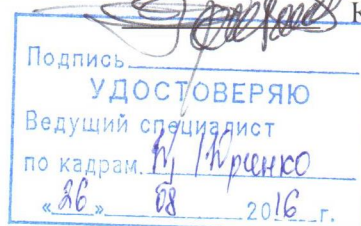 К
Подпись
УДОСТОВЕРЯЮ
Ведущий специалист
по кадрам.
«26» 08 2016 г.